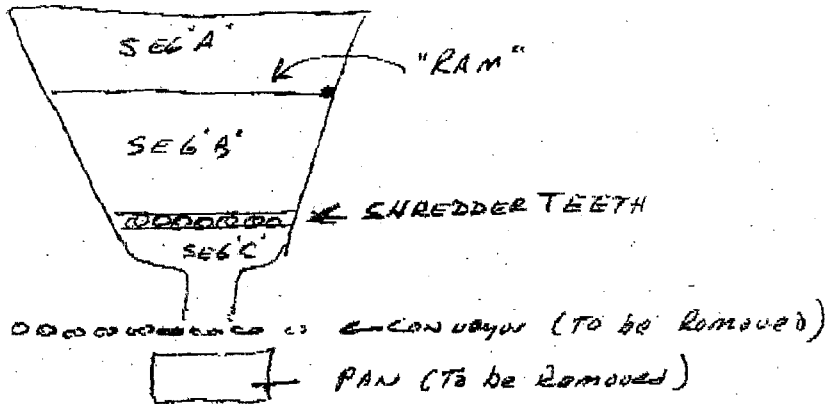 SEG "A"
"RAM"
SEG 'B'
SHREDDER TEETH
SEG 'C'
CONVEYOR (To be Removed)
PAN (To be Removed)